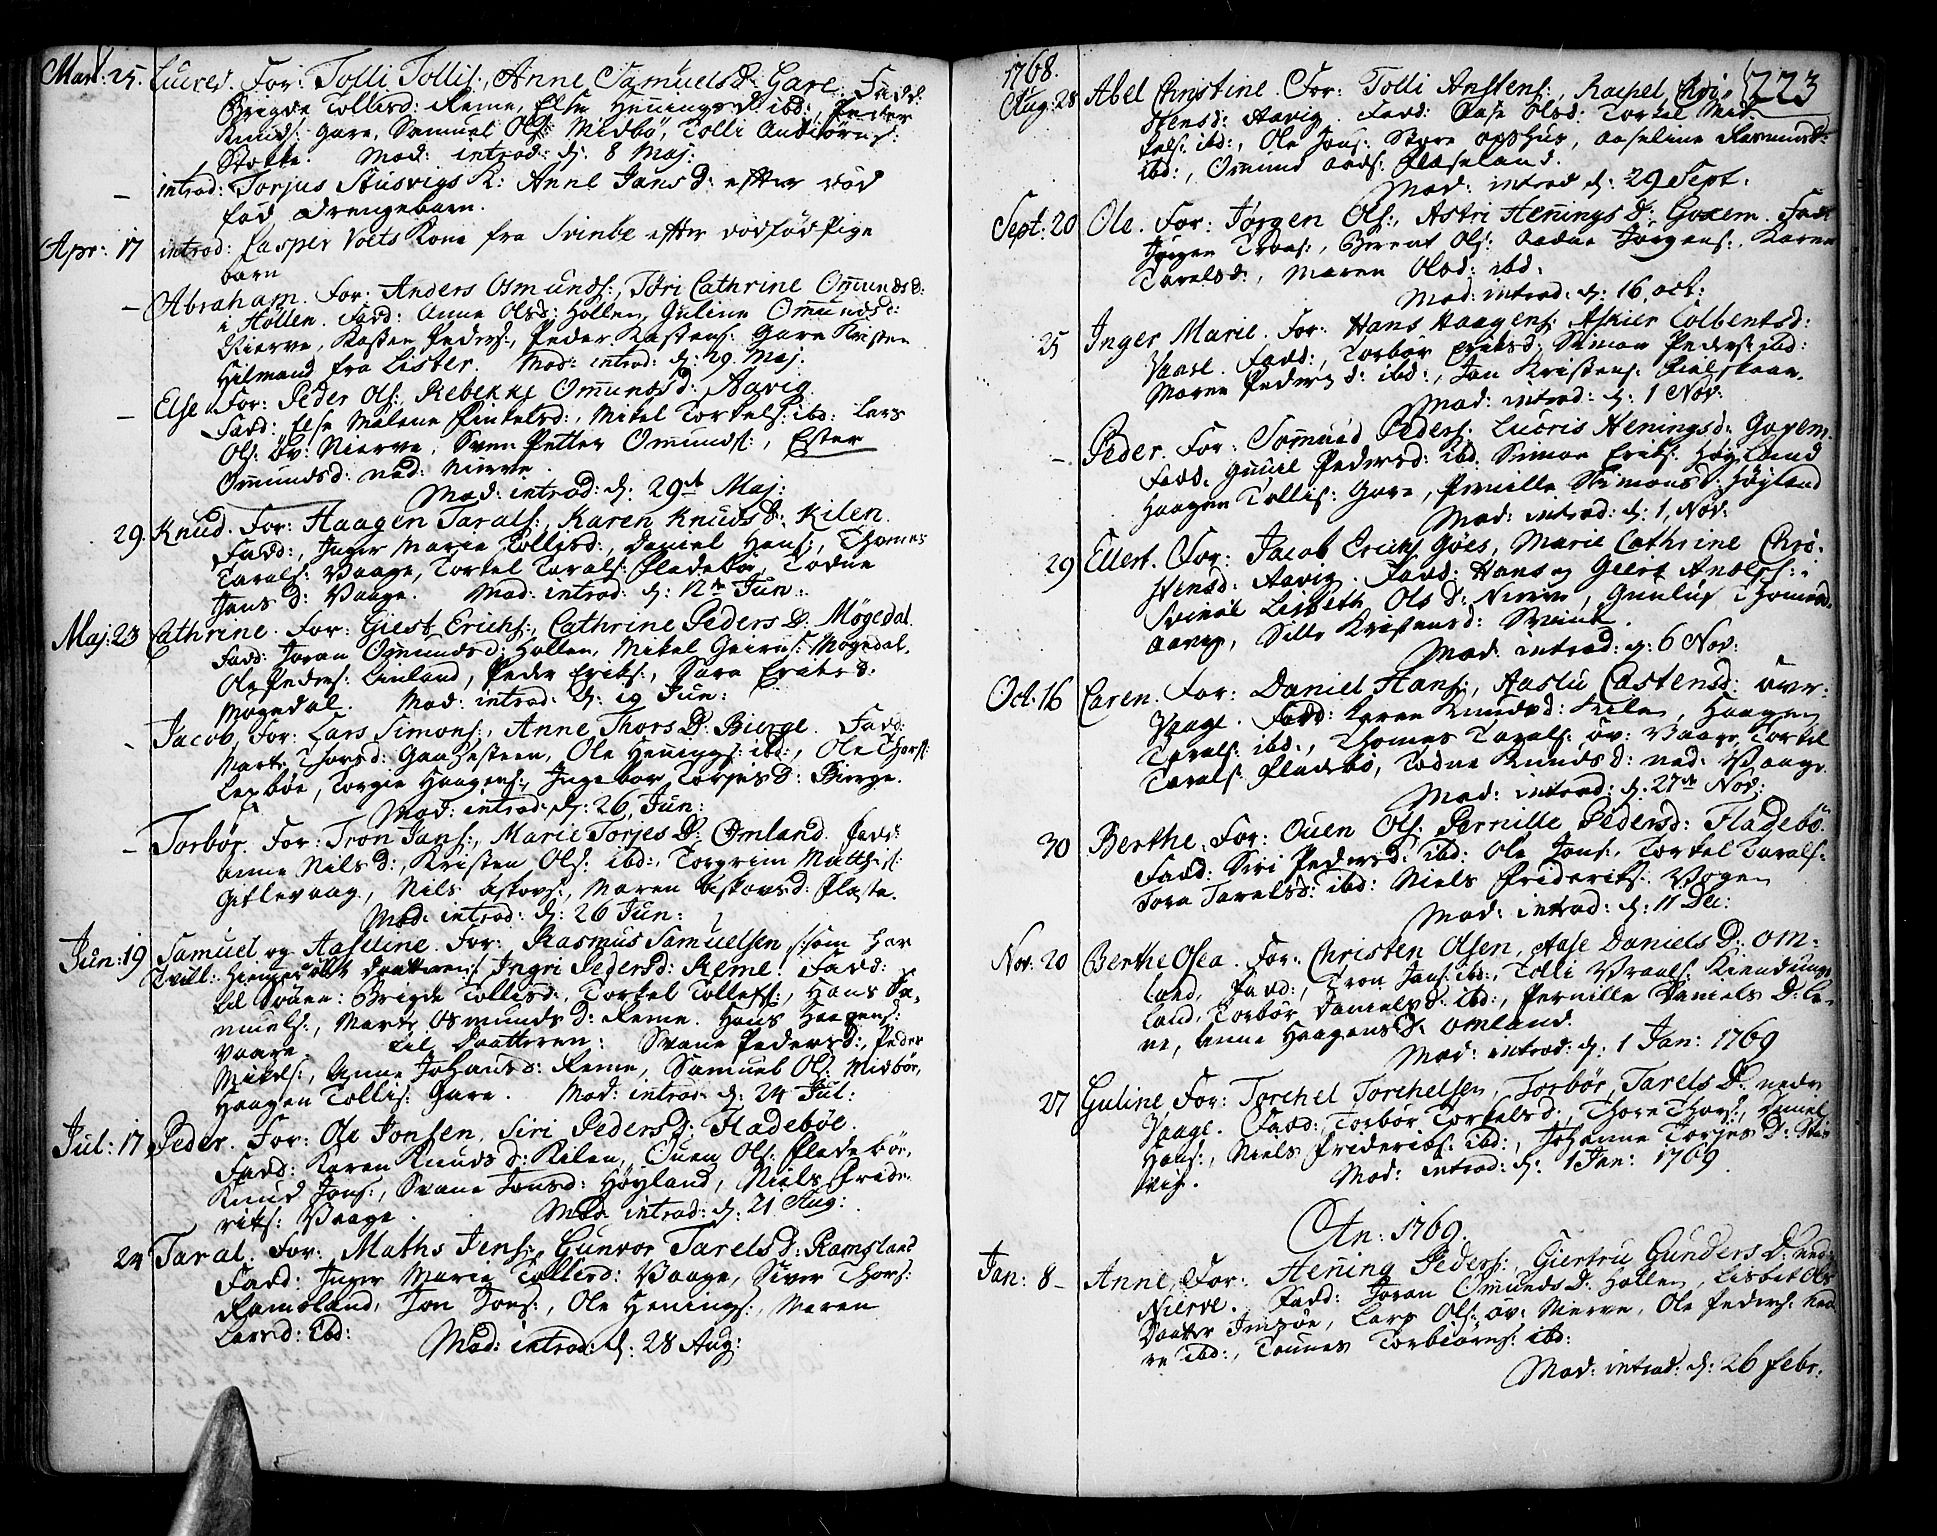 Mart: 25. Lucres. For: Tolli Tollis:, Anne Samuels D: Gare. Fadd:
Brigde Tollisd: Reme, Else Henings D: ibd:, Peder
Knuds: Gare, Samuel Ols: Midbö, Tolli Autbiörns:
Stokke. Mod: introd: d: 8 Maj:
– introd: Torjus Stusvigs K: Anne Jans D: efter död
fød drengebarn.
Apr: 17 introd: Casper Voets Kone fra Svinöe efter dödfød Pige
barn
– Abraham. For: Anders Osmunds:, Töri Cathrine Omunds D:
i Hollen. Fadd: Anne Olsd: Hollen, Guline Omundsd:
Nierve, Kasten Peders:, Peder Kastens: Gare Kristen
Hilmand fra Lister. Mod: introd: d: 29 Maj.
– Else For: Peder Ols:, Rebekke Omunds D: Aavig
Fadd: Else Malene Finkelsd:, Mikel Torkels: ibd: Lars
Ols: öv: Nierve, Sven Petter Omunds:, Ester
Omundsd: ned: Nierve.
Mod: introd: d: 29de Maj:
29. Knud. For: Haagen Tarals:, Karen Knuds D: Kilen.
Fadd:, Inger Marie Tollisd:, Daniel Hans:, Thomes
Tarals: Vaage, Torkel Tarals: Fladebö, Todne
Jans D: Vaage. Mod: introd: d: 12te Jun:
Maj: 23 Cathrine. For: Giest Erichs:, Cathrine Peders D: Mögedal.
Fadd: Joran Omunds D: Hollen, Mikel Geirus: Mögedal,
Ole Peders: Linland, Peder Eriks:, Sara Eriks D:
Mögedal. Mod: introd: d: 19 Jun:
– Jacob, For: Lars Simons:, Anne Thors D: Bierge. Fadd:
Marte Thorsd: Gaahesteen, Ole Henings: ibd:, Ole Thors:
Lexböe, Torgie Haagens:, Ingebor Torjes D: Bierge.
Mod: introd: d: 26, Jun:
– Torbör. For: Tron Jans:, Marie Torjes D: Omland. Fadd:
Anne Nils D:, Kristen Ols: ibd:, Torgrim Matths:
Gitlevaag, Nils Askous:, Maren Askousd: Flaste.
Mod: introd: d: 26 Jun:
Jun: 19 Samuel og Aaseline. For: Rasmus Samuelsen som har
Tvill: Ingri Pedersd: Reme. Fadd:
til Sönen: Brigde Tollisd:, Torkel Tollefs:, Hans Sa-
muels:, Marte Osmunds D: Reme. Hans Haagens:
Vaare til Daatteren: Svane Pedersd:, Peder
Mikels:, Anne Johansd: Reme, Samuel Ols: Midbö,
Haagen Tollis: Gare. Mod: introd: d: 24 Jul:
Jul: 17 Peder. For: Ole Jonsen, Siri Peders D: Fladeböe.
Fadd: Karen Knuds D: Kilen, Ouen Ols: Fladebö,
Knud Jons:, Svane Jonsd: Höyland, Niels Fride-
riks: Vaage. Mod: introd: d: 21 Aug:
24 Taral. For: Maths Jens:, Gunvor Tarels D: Ramsland
Fadd: Inger Marie Tollisd: Vaage, Siver Thors:
Ramsland, Jon Jons:, Ole Henings:, Maren
Larsd: ibd:
Mod: introd: d: 28 Aug:
1768. 223
Aug: 28 Abel Christine. For: Tolli Anstens:, Rachel Chri-
stensd: Aavig. Fadd: Aase Olsd: Torkel Mi-
kels: ibd:, Ole Jons: Store Opshus, Aaseline Rasmusd:
ibd:, Omund Aads: Flaseland.
Mod: introd d: 29 Sept:
Sept: 20 Ole. For: Jörgen Ols:, Astri Henings D: Goxem. Fadd
Jörgen Trons:, Berent Ols: Aadne Jörgens:, Karen
Taralsd:, Maren Olsd: ibd:
Mod: introd: d: 16, oct:
25 Inger Marie. For: Hans Haagens: Askier Colbentsd:
Vaare. Fadd:, Torbör Eriksd: Simon Peders: ibd:
Maren Peders D: ibd:, Jan Kristens: Fielskaar.
Mod: introd: d: 1 Nov:
– Peder. For: Samuel Peders: Lucris Henings D: Goxem.
Fadd: Guuel Pedersd: ibd: Simon Eriks: Höyland
Haagen Tollis: Gare, Pernille Simons D: Höyland
Mod: introd: d: 1, Nov:
29 Ellert. For: Jacob Erichs: Göes, Marie Cathrine Chri-
stensd: Aavig. Fadd: Hans og Geert Anders: i
Svinöe Lisbeth Ols D: Nierve, Gunluf Thomesd:
Aavig, Sille Kristensd: Svinöe.
Mod: introd: d: 6 Nov:
Oct: 16 Caren. For: Daniel Hans:, Aaslu Castensd: över:
Vaage. Fadd: Karen Knudsd: Kilen, Haagen
Tarals: ibd:, Thomes Tarals: öv: Vaage, Torkel
Tarals: Fladebö, Todne Knuds D: ned: Vaage.
Mod: introd: d: 27de Nov:
30 Berthe. For: Ouen Ols: Pernille Pedersd: Fladebö.
Fadd: Siri Pedersd: ibd: Ole Jons:, Torkel Tarals:
Tora Taralsd: ibd: Niels Frideriks: Vogen
Mod: introd: d: 11 De:
Nov: 20 Berthe Olea. For: Christen Olsen, Aase Daniels D: Om-
land. Fadd:, Tron Jans: ibd:, Tolli Vraals: Kiendings-
land, Torbör Danielsd: ibd:, Pernille Daniels D: Le-
ne, Anne Haagens D: Omland.
Mod: introd: d: 1 Jan: 1769
27 Guline For: Torchel Torchelsen, Torbör Tarels D: nedr
Vaage. Fadd: Torbör Torkelsd:, Thore Thors:, Daniel
Hans:, Niels Friderichs: ibd:, Johanne Torjes D: Stus
vig. Mod: introd: d: 1 Jan: 1769.
An: 1769.
Jan: 8 – Anne, For: Hening Peders:, Giertru Gunders D: ned:
Nierve. Fadd: Joran Omunds D: Hollen, Lisbet Ols
Daatter Imsöe, Lars Ols: öv: Nerve, Ole Peders: ned
re ibd:, Tönnes Torbiörns: ibd:
Mod: introd: d: 26 Febr.